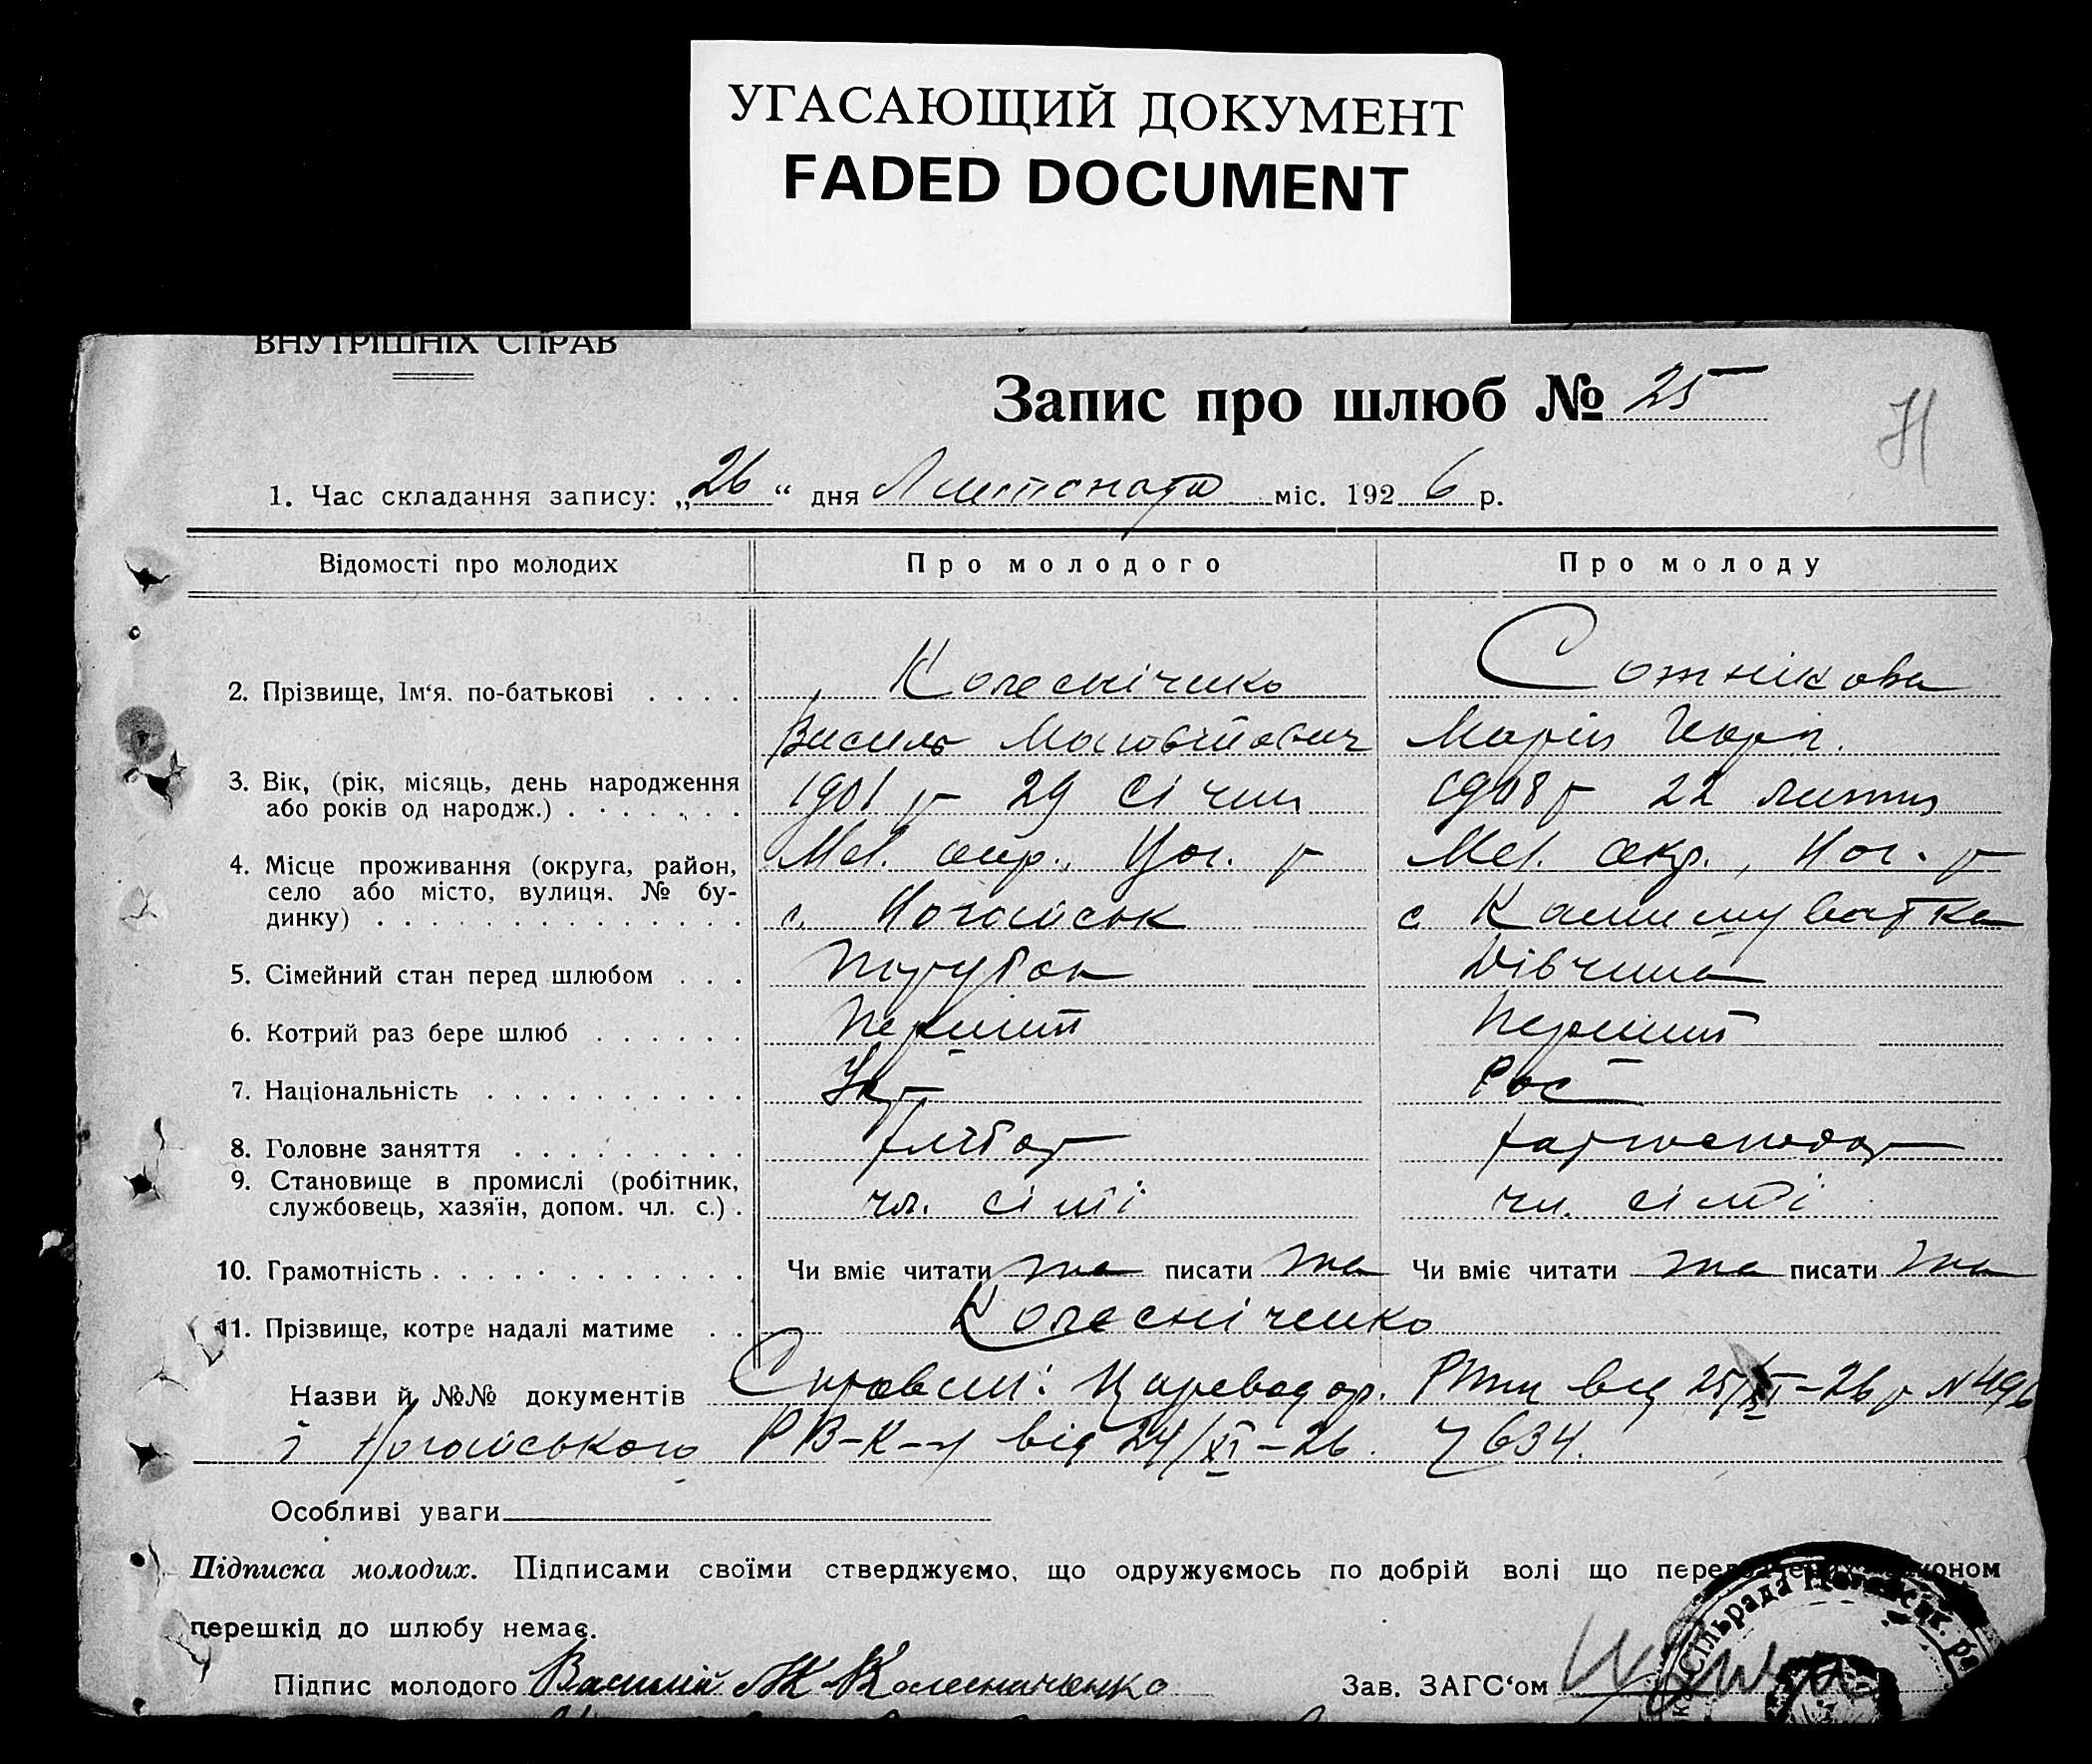 УГАСАЮЩИЙ ДОКУМЕНТ
FADED DOCUMENT
ВНУТРІШНІХ СПРАВ
Запис про шлюб № 25
1. Час складання запису: „26“ дня Листопада міс. 1926 р.
Відомості про молодих Про молодого Про молоду
2. Прізвище, Ім‘я. по-батькові . . . . Колесніченко Сотнікова
Василь Марія
3. Вік, (рік, місяць, день народження 1901 р 29 Січня 1908 р 22 лютня
або років од народж.) . . . . . . .
4. Місце проживання (округа, район, Мел. окр., Ног. р Мел. окр., Ног. р
село або місто, вулиця. № бу-
динку) . . . . . . . . . . . . . . с. Ногайськ с
5. Сімейний стан перед шлюбом . . . Парубок Дівчина
6. Котрий раз бере шлюб . . . . . . Перший Перший
7. Національність . . . . . . . . . . Укр Рос
8. Головне заняття . . . . . . . . . хлібор
9. Становище в промислі (робітник,
службовець, хазяїн, допом. чл. с.) . чл. сімї чл. сімї
10. Грамотність . . . . . . . . . . . . Чи вміє читати та писати та Чи вміє читати та писати та
11. Прізвище, котре надалі матиме . . Колесніченко
Назви й №№ документів Справки: Цареводар. від 25/XI-26 р N 496
і Ногайського РВ-К-у від 24/XI-26. 7634.
Особливі уваги
Підписка молодих. Підписами своїми стверджуємо, що одружуємось по добрій волі що
перешкід до шлюбу немає.
Підпис молодого Василій Колесниченко Зав. ЗАГС‘ом
Сільрада Ногайськ. ра